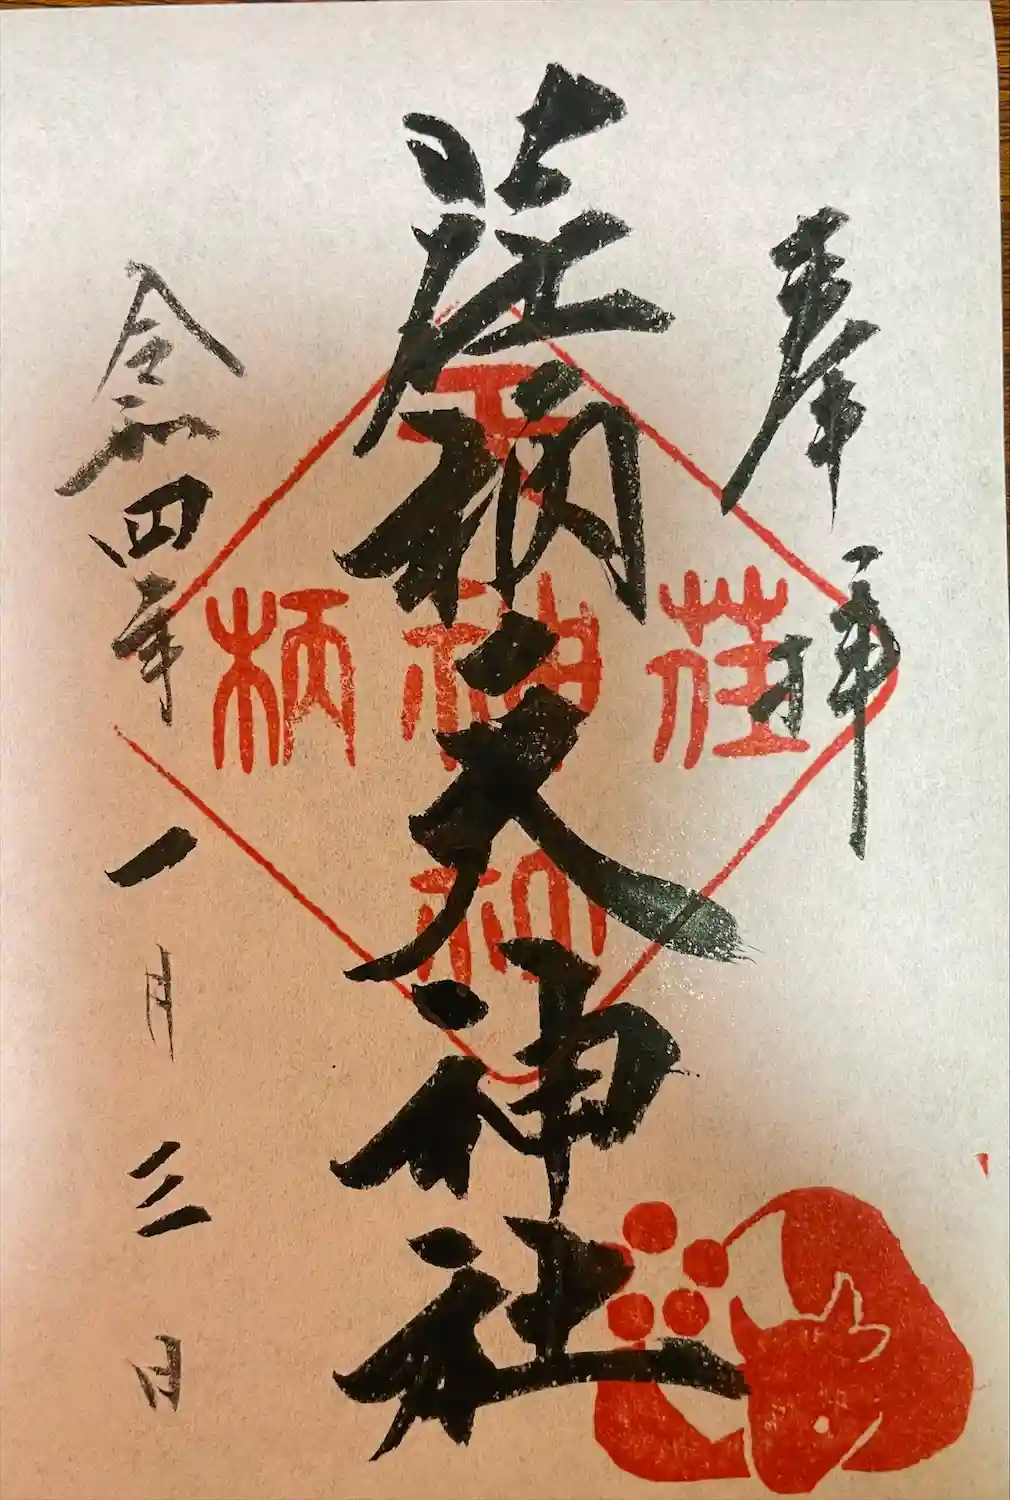 奉拝
荏柄天神社
令和四年一月三日
荏柄
天神社